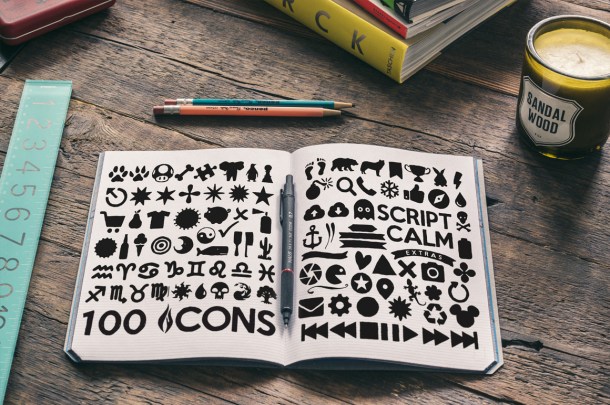 RCK
SANDAL
WOOD
1 2 3 4 5 6 7 8 9 10
SCRIPT
CALM
EXTRAS
100 ICONS